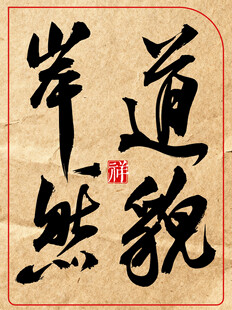 道貌
岸然
祥